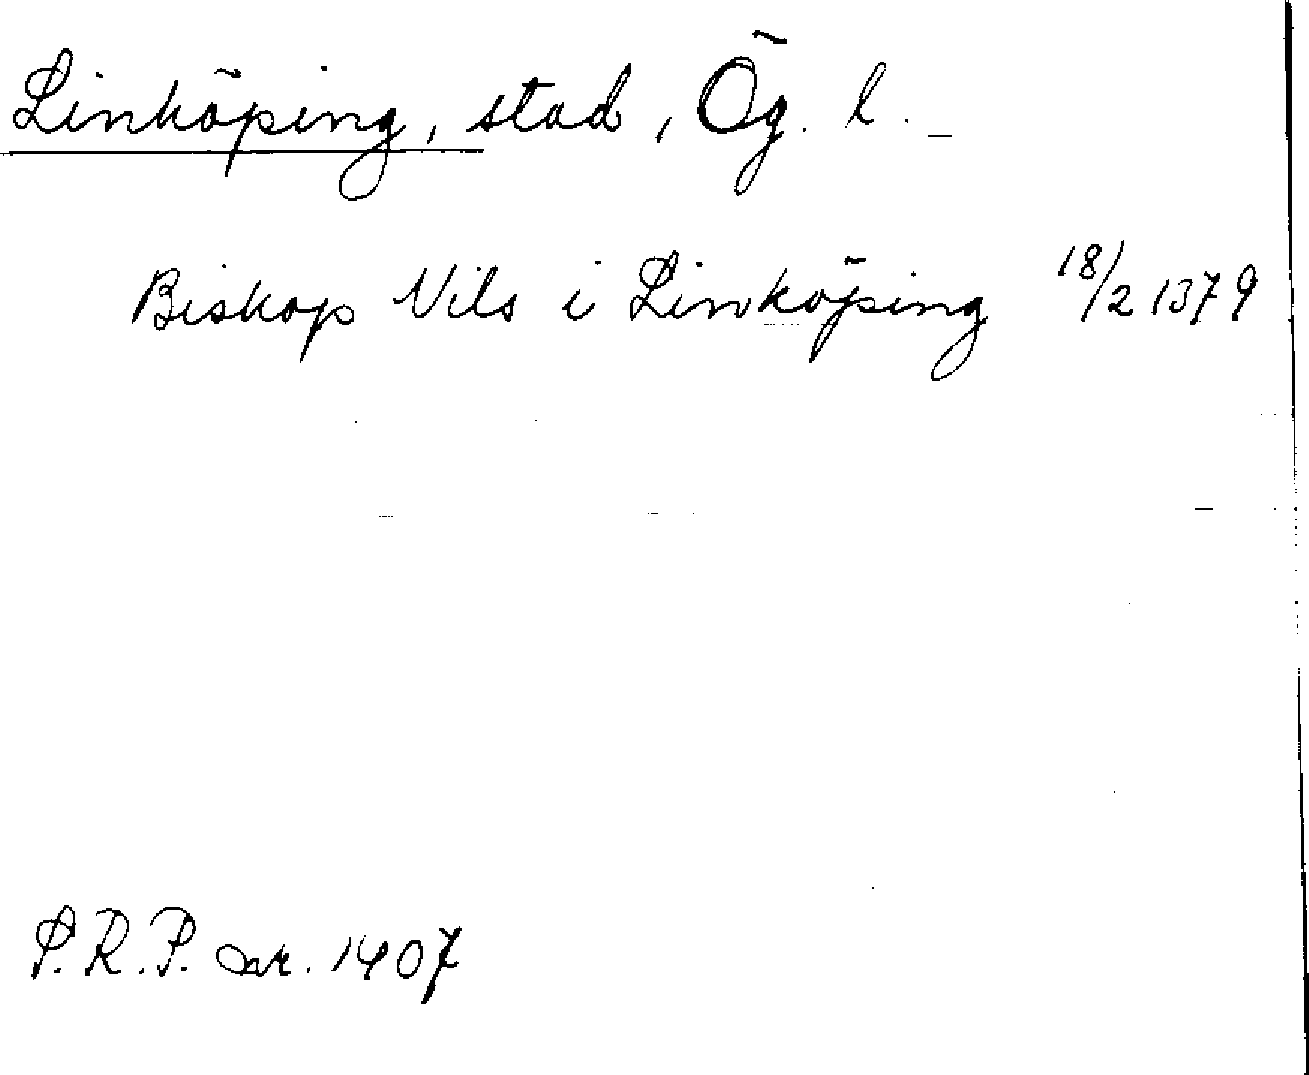 Linköping, stad, Ög. l.
Biskop Nils i Linköping 18/2 1379
S.R.P. nr. 1407